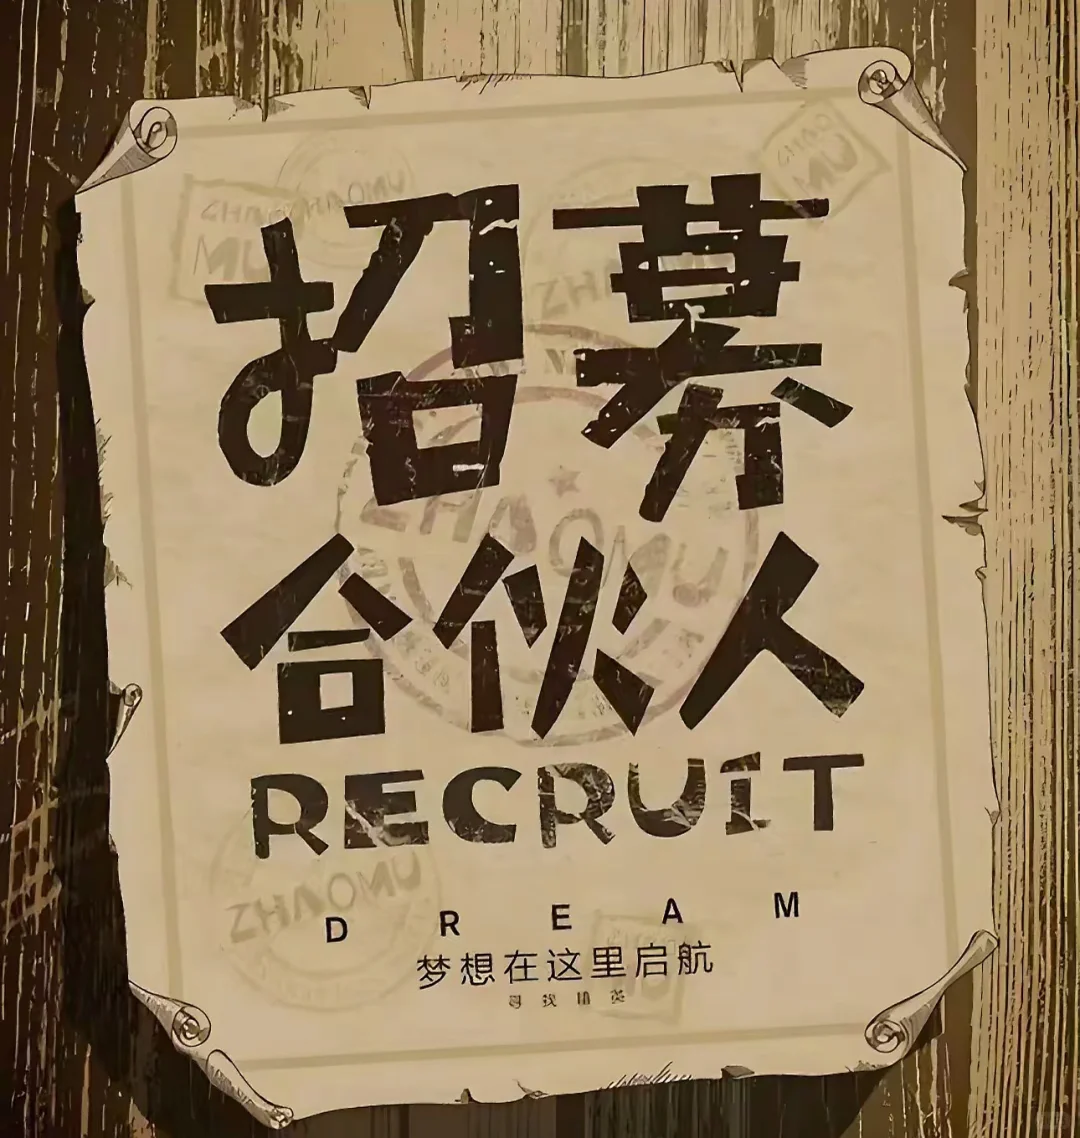 招募
合伙人
RECRUIT
DREAM
梦想在这里启航
寻找精英
ZHAOMU
ZHAOMU
ZHAOMU
ZHAOMU